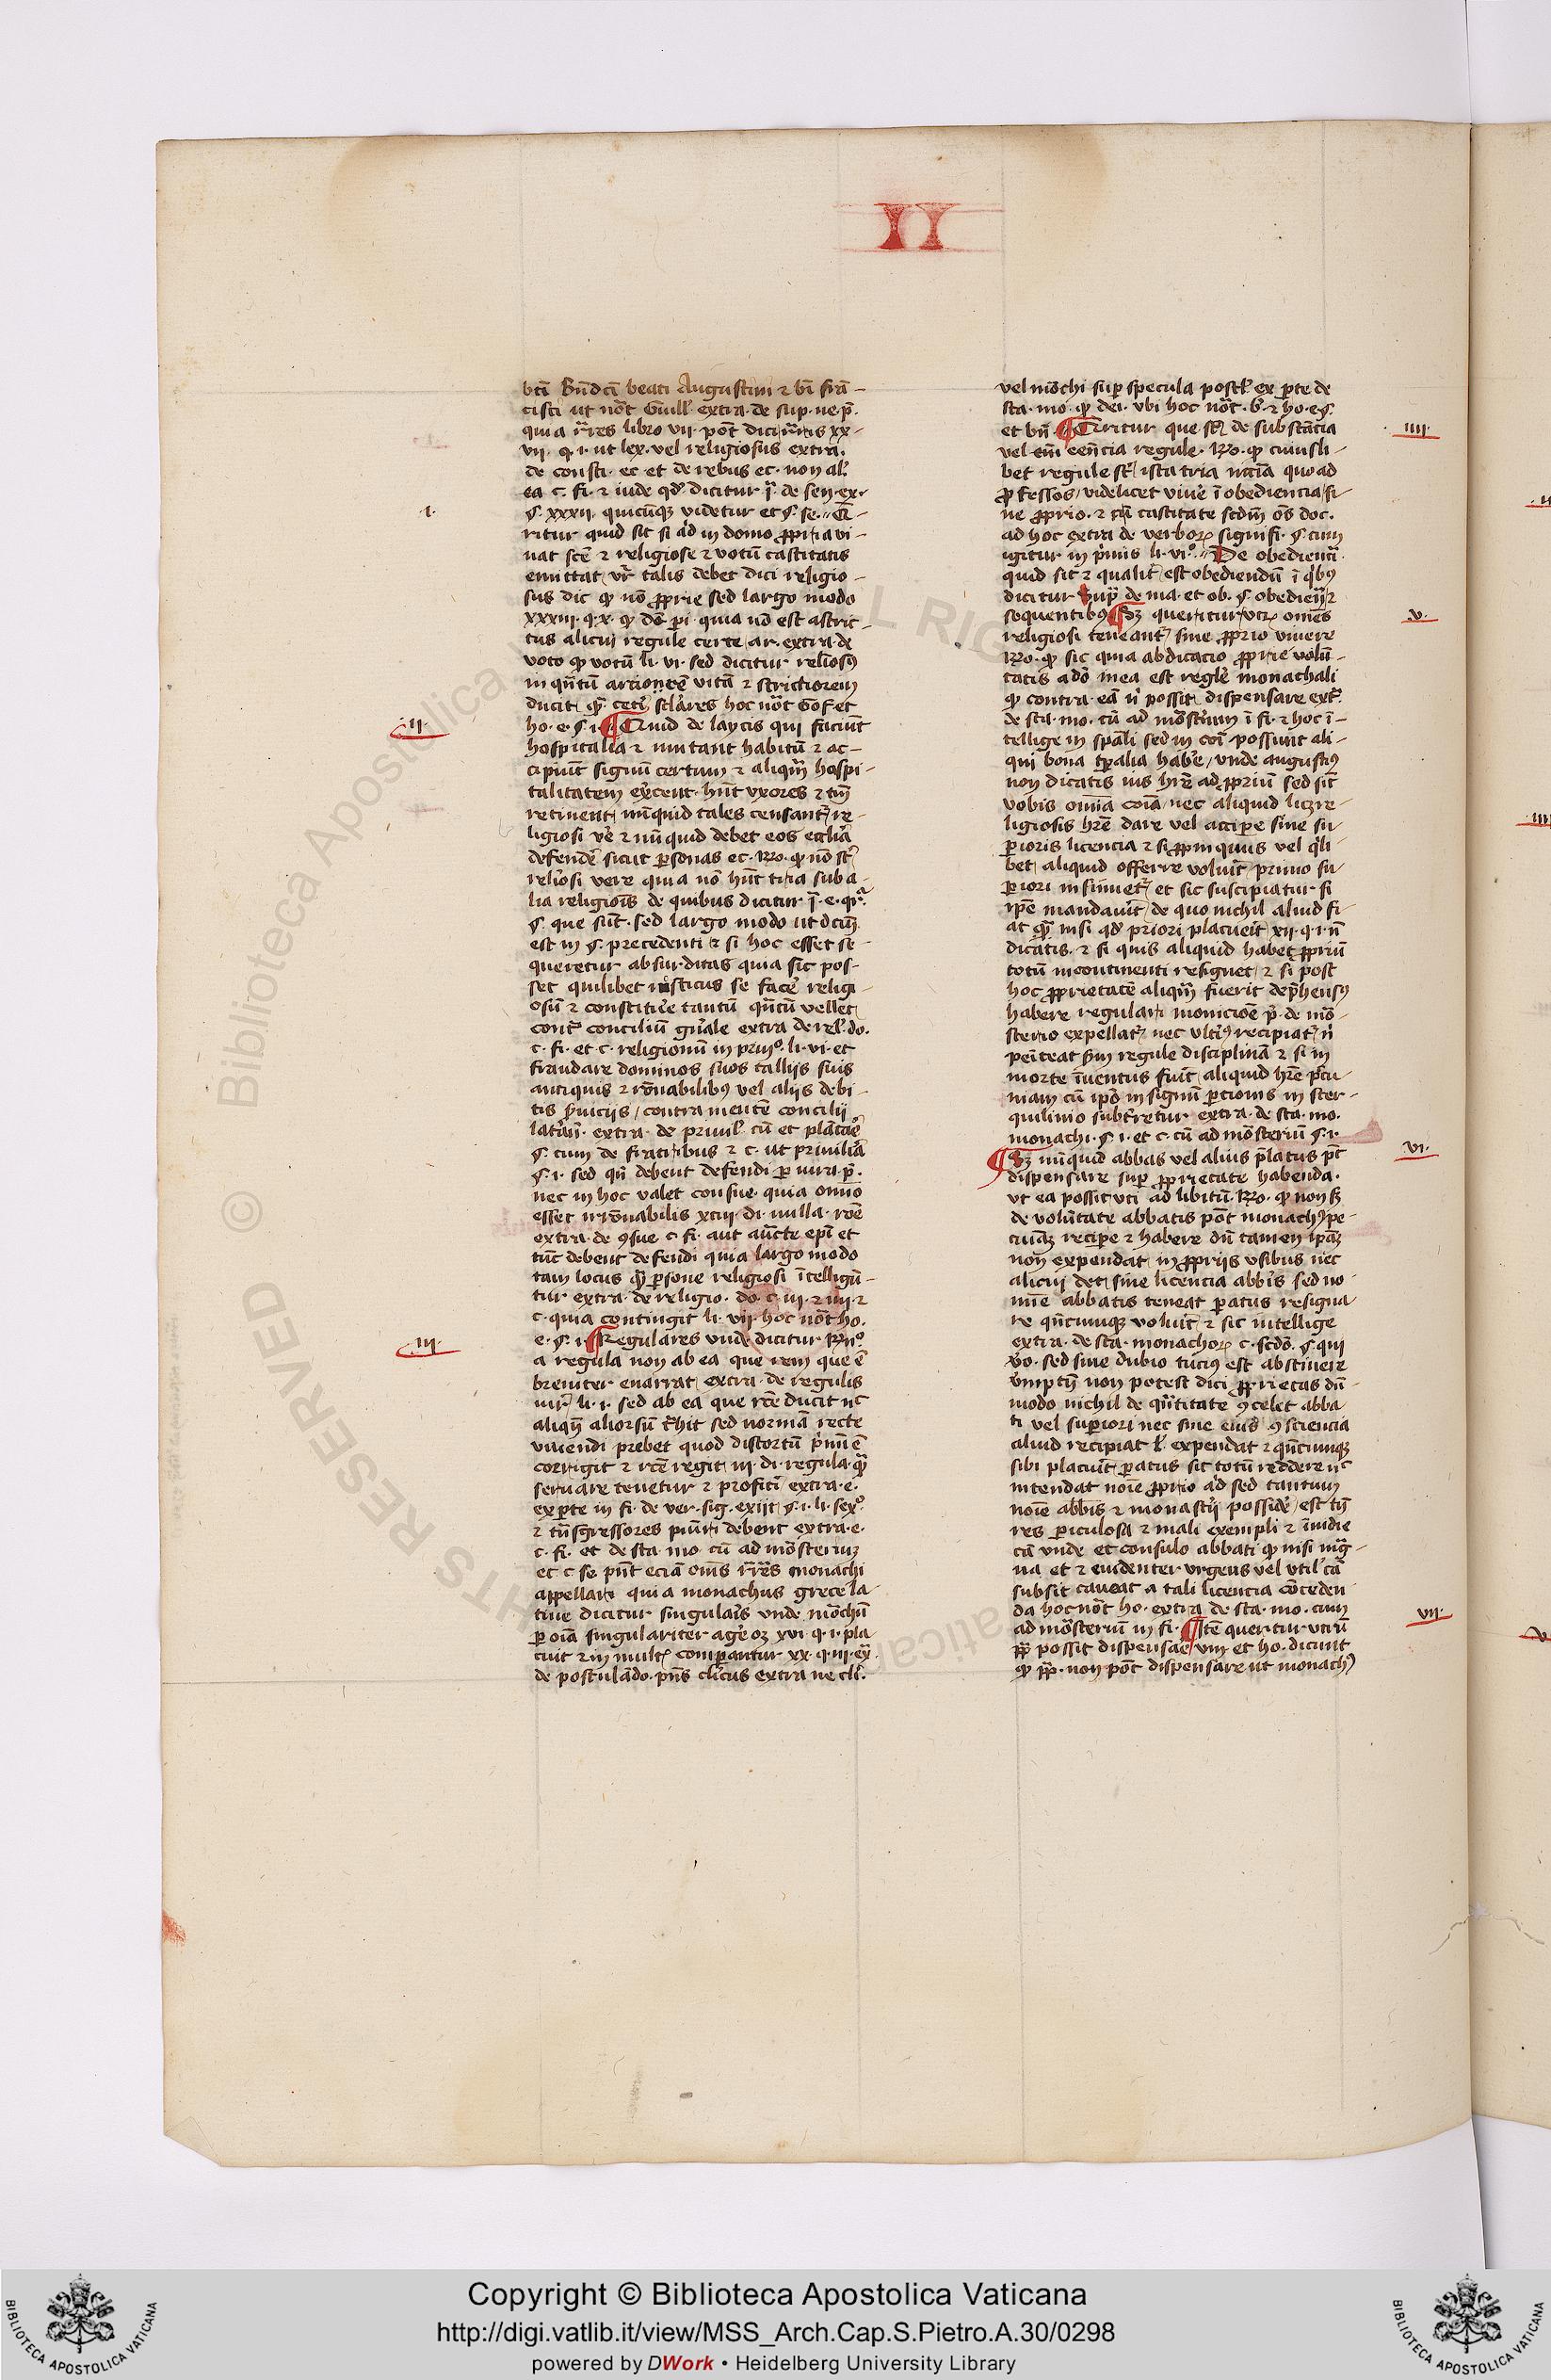 II
bti Bn̄dcī beati Augustini ⁊ bī frā-
cisci ut nōt Guill' extra de sup. ne p̄.
vii. q. i. ut lex. vel religiosus extra.
de consti. ec et de rebus ec. non al'
ꝯ. xxxii. quicūqꝫ videtur et ꝯ. se. Q-
.i.
ritur quid sit si ad in domo ꝓpria vi-
uat scē ⁊ religiose ⁊ votū castitatis
emittat vtr̄ talis debet dici religio-
sus dic qꝫ nō ꝓprie sed largo modo
tus alicui regule certe ar. extra de
voto qꝫ votū li. vi. sed dicitur
vitā ⁊ strictiorem
.ii.
Quid de laycis qui faciūt
hospitalia ⁊ mutant habitū ⁊ ac-
cipiūt signū certum ⁊ aliqm̄ hospi-
talitatem ex̄cent. hn̄t vxores ⁊ tm̄
retinent nūquid tales censant̄ re-
ligiosi v̄e ⁊ nūquid debet eos eccl'ia
defendē sicut ꝑsonas ec. Rꝰ. qꝫ nō st̄
reliōsi vere quia nō hn̄t tria suba-
lia religiōis de quibus dicitur ī. e.
ꝯ. que sūt. sed largo modo ut dcm̄
est in ꝯ. precedenti ⁊ si hoc esset se-
queretur absurditas quia sic pos-
set quilibet rusticus se facē religi-
osū ⁊ constituē tantū qn̄tū vellet
cont̄ conciliū gn̄ale extra de rel. do.
c. fi. et c. religionū in primo. li. vi. et
fraudare dominos suos talliis suis
antiquis ⁊ rōnabilibꝰ vel aliis debi-
tis ſ̄uiciis contra mentē concilii
ꝯ. cum de fratribus ⁊ c. ut priuilia
ꝯ. i. sed qn̄ debent defendi ꝑ iura p̄.
nec in hoc valet consue. quia om̄o
esset irrōnabilis
tūc debent defendi quia largo modo
tam locus qm̄ ꝑsone religiosi ītelligū-
tur extra. de religio. do. c. iii. ⁊ iiii. ⁊
c. quia contingit li. vii. hoc nōt ho.
.iii.
e. ꝯ. i. Regulares vnde dicitur Rn̄ᵒ.
a regula non ab ea que rem que ē
breuiter enarrat extra. de regulis
iur̄ li. i. sed ab ea que rcē ducit nᶜ
aliqn̄ aliorsū t̄hit sed normā recte
viuendi prebet quod distortū
corrigit ⁊ rcē regit iii. di. regula. qm̄
seruare tenetur ⁊ profiteri extra. e.
ex ꝑte in fi. de ver. sig. exiit. ꝯ. i. li. sexᵒ.
⁊ tn̄sgressores puniri debent extra. e.
c. fi. et de sta. mo. cū ad mōsteriuꝫ
monachi
appellari quia monachus grece la-
tine dicitur singularis vnde mōchū
ꝑ oīa singulariter agē oꝫ xvi. q. i. pla
cuit ⁊ in mult̄ comparantur xx. q. iii. ex̄.
de postulādo. pn̄s cl'icus extra ne cl'i.
vel mōchi sup̄ specula postl' ex ꝑte de
sta. mo. qꝫ dei. vbi hoc nōt. b. ⁊ ho. e ꝯ.
.iiii.
et bn̄. Queritur que st̄ de substācia
vel eēncia regule. Rꝰ. qꝫ cuiusli-
bet regule st̄ ista tria nccīa quo ad
ꝓfessos videlicet viuē ī obediencia si-
ne ꝓprio. ⁊ cū castitate scdm̄ oēs doc.
ad hoc extra de verboꝝ signifi. ꝯ. cum
igitur in p̄mis li. vi°. De obediencīa
quid sit ⁊ qualit̄ est obediendū ī qibꝰ
dicitur supᵃ de ma. et ob. ꝯ. obediencia ⁊
.v.
sequentibꝰ. Sꝫ queritur vtꝝ omēs
religiosi teneant̄ sine ꝓprio viuere
Rꝰ. qꝫ sic quia abdicacio ꝓprie volū-
tatis adeo mea est regl'e monachali
qꝫ contra eā n̄ possit dispensare ext̄.
de sta. mo. cū ad mōst̄ium ī fi. ⁊ hoc ī-
tellige in spāli sed in cōi possunt ali-
qui bona tꝑalia habē, vnde augustiꝰ
non dicatis ius hr̄e ad ꝓpriū sed sīt
vobis omīa cōia, nec aliquid licꝫ re-
ligiosis hr̄e dare vel accipe sine su-
ꝑioris licencia ⁊ si ꝓpinquus vel qili-
bet aliquid offerre voluīt primo su-
ꝑiori insinuet̄ et sic suscipiatur si
ip̄e mandauīt de quo nichil aliud fi-
at qm̄ nisi qd̄ priori placueīt xii. q. i. n̄
dicatis. ⁊ si quis aliquid habet ꝓpriū
totū incontinenti resignet, ⁊ si post
hoc ꝓprietatē aliqm̄ fuerit dep̄hensꝰ
habere regulari monicōe p̄. de mō-
sterio expellat̄ nec vlt̄iꝰ recipiat̄ n̄
penīteat ſm̄ regule disciplinā ⁊ si in
morte īuentus fuīt aliquid hr̄e pecu-
niam cū ip̄o in signū ꝑdicionis in ster-
quilinio subt̄retur extra. de sta. mo.
monachi. ꝯ. i. et c. cū ad mōsteriū ꝯ. i.
.vi.
Sꝫ nūquid abbas vel alius p̄latus pōt
dispensare sup̄ ꝓprietate habenda.
vt ea possit vti ad libitū. Rꝰ. qꝫ non sꝫ
de volūtate abbatis pōt monachꝰ pe-
cuniāꝫ recipe ⁊ habere dū tamen ip̄aꝫ
non expendat in ꝓpriis vsibus nec
alicui det sine licencia abbīs sed no-
mīe abbatis teneat ꝑatus resigna-
re qn̄cunqꝫ voluīt ⁊ sic intellige
extra. de sta. monachoꝝ c. scdō. ꝯ. qui
v̄o. sed sine dubio tuciꝰ est abstinere
non potest dici ꝓprietas dū-
modo nichil de qn̄titate ꝯcelet abba
ti vel superiori nec sine eius ꝯsciencia
aliud recipiat l' expendat ⁊ qn̄cunqꝫ
sibi placuīt ꝑatus sit totū reddere nᶜ
intendat noīe ꝓprio sed tantum
noīe abbīs ⁊ monast̄ii possidē est tn̄
res ꝑiculosa ⁊ mali exempli ⁊ īuidie
vnde et consulo abbati qꝫ nisi mag-
na et ⁊ euidenter vrgens vel vtil' cā
subsit caueat a tali licencia cōceden
da hoc nōt ho. extra de sta. mo. cum
.vii.
ad mōsteriū in fi. Itē queritur vtrū
pp̄ possit dispensare vin et ho. dicunt
qꝫ pp̄. non pōt dispensare ut monachꝰ
Copyright © Biblioteca Apostolica Vaticana
http://digi.vatlib.it/view/MSS_Arch.Cap.S.Pietro.A.30/0298
powered by DWork • Heidelberg University Library
BIBLIOTECA APOSTOLICA VATICANA
BIBLIOTECA APOSTOLICA VATICANA